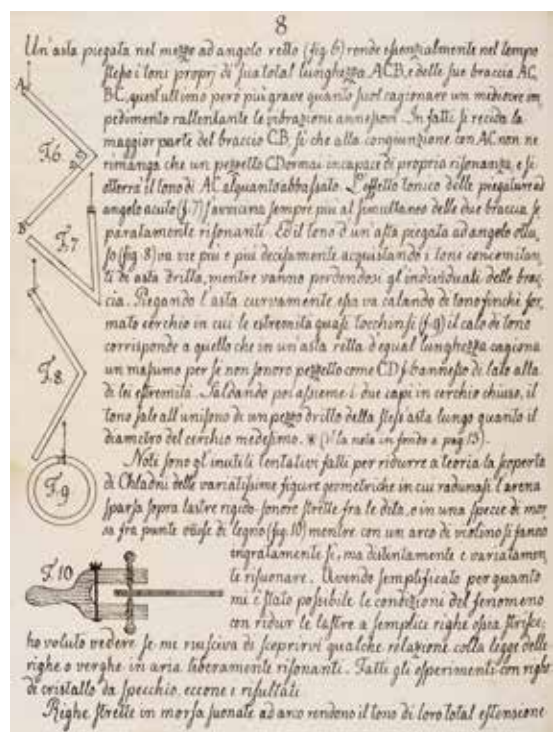 8
Un'asta piegata nel mezzo ad angolo retto (fig. 6) rende essenzialmente nel tempo
stesso i toni proprj di sua total lunghezza ACB, e delle sue braccia AC,
BC, quest'ultimo però piu grave quanto suol cagionare un mediocre im
pedimento rallentante le vibrazione annessovi. In fatti si recida la
maggior parte del braccio CB, si che alla congiunzione con AC non ne
rimanga che un pezzetto CD ormai incapace di propria risonanza, e si
otterrà il tono di AC alquanto abbassato. L'effetto tonico delle piegature ad
angolo acuto (f. 7) s'avvicina sempre piu al simultaneo delle due braccia se
paratamente risonanti. Ed il tono d'un'asta piegata ad angolo ottu
so (fig. 8) va vie piu e piu decisamente acquistando i toni concomitan
ti di asta dritta, mentre vanno perdendosi gl'individuali delle brac
cia. Piegando l'asta curvamente essa va calando di tono finchè for
mato cerchio in cui le estremità quasi tocchinsi (f. 9) il calo di tono
corrisponde a quello che in un'asta retta d'egual lunghezza cagiona
un massimo per se non sonoro pezzetto come CD f. 6 annesso di lato alla
di lei estremità. Saldando poi assieme i due capi in cerchio chiuso, il
tono sale all'unisono di un pezzo dritto della stess'asta lungo quanto il
diametro del cerchio medesimo. * (V. la nota in fondo a pag 13).
Noti sono gl'inutili tentativi fatti per ridurre a teoria la scoperta
di Chladni delle variatissime figure geometriche in cui radunasi l'arena
sparsa sopra lastre rigido-sonore strette fra le dita, o in una specie di mor
sa fra punte ottuse di legno (fig. 10) mentre con un arco di violino si fanno
ingratamente si, ma distintamente e variatamen
te risuonare. Avendo semplificato per quanto
mi è stato possibile le condizioni del fenomeno
con ridur le lastre a semplici righe ossia strisce,
ho voluto vedere se mi riusciva di scoprirvi qualche relazione colla legge delle
righe o verghe in aria liberamente risonanti. Fatti gli esperimenti con righe
di cristallo da specchio, eccone i risultati
Righe strette in morsa suonate ad arco rendono il tono di loro total estensione
A
F. 6
D
C
B
F. 7
F. 8
F. 9
F. 10